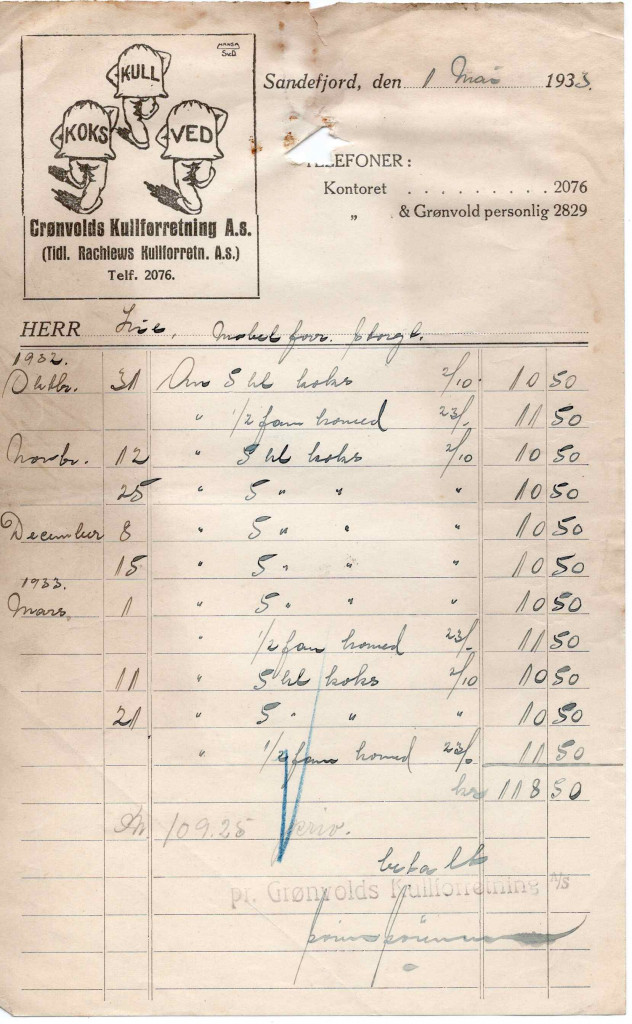 KULL
KOKS
VED
Grønvolds Kullforretning A.s.
(Tidl. Rachlews Kullforretn. A.s.)
Telf. 2076.
Sandefjord, den 1 Mai 1933.
TELEFONER:
Kontoret . . . . . . . . . . 2076
„ & Grønvold personlig 2829
HERR
1932.
Oktbr. 31 An 5 hl koks 2/10. 10 50
" 1/2 favn 23/- 11 50
Novbr. 12 " 5 hl koks 2/10 10 50
25 " 5 " " " 10 50
December 8 " 5 " " " 10 50
15 " 5 " " " 10 50
1933.
Mars 1 " 5 " " " 10 50
" 1/2 favn 23/- 11 50
11 " 5 hl koks 2/10 10 50
21 " 5 " " " 10 50
" 1/2 favn 23/- 11 50
kr 118 50
109.25
betalt
pr. Grønvolds Kullforretning A/s